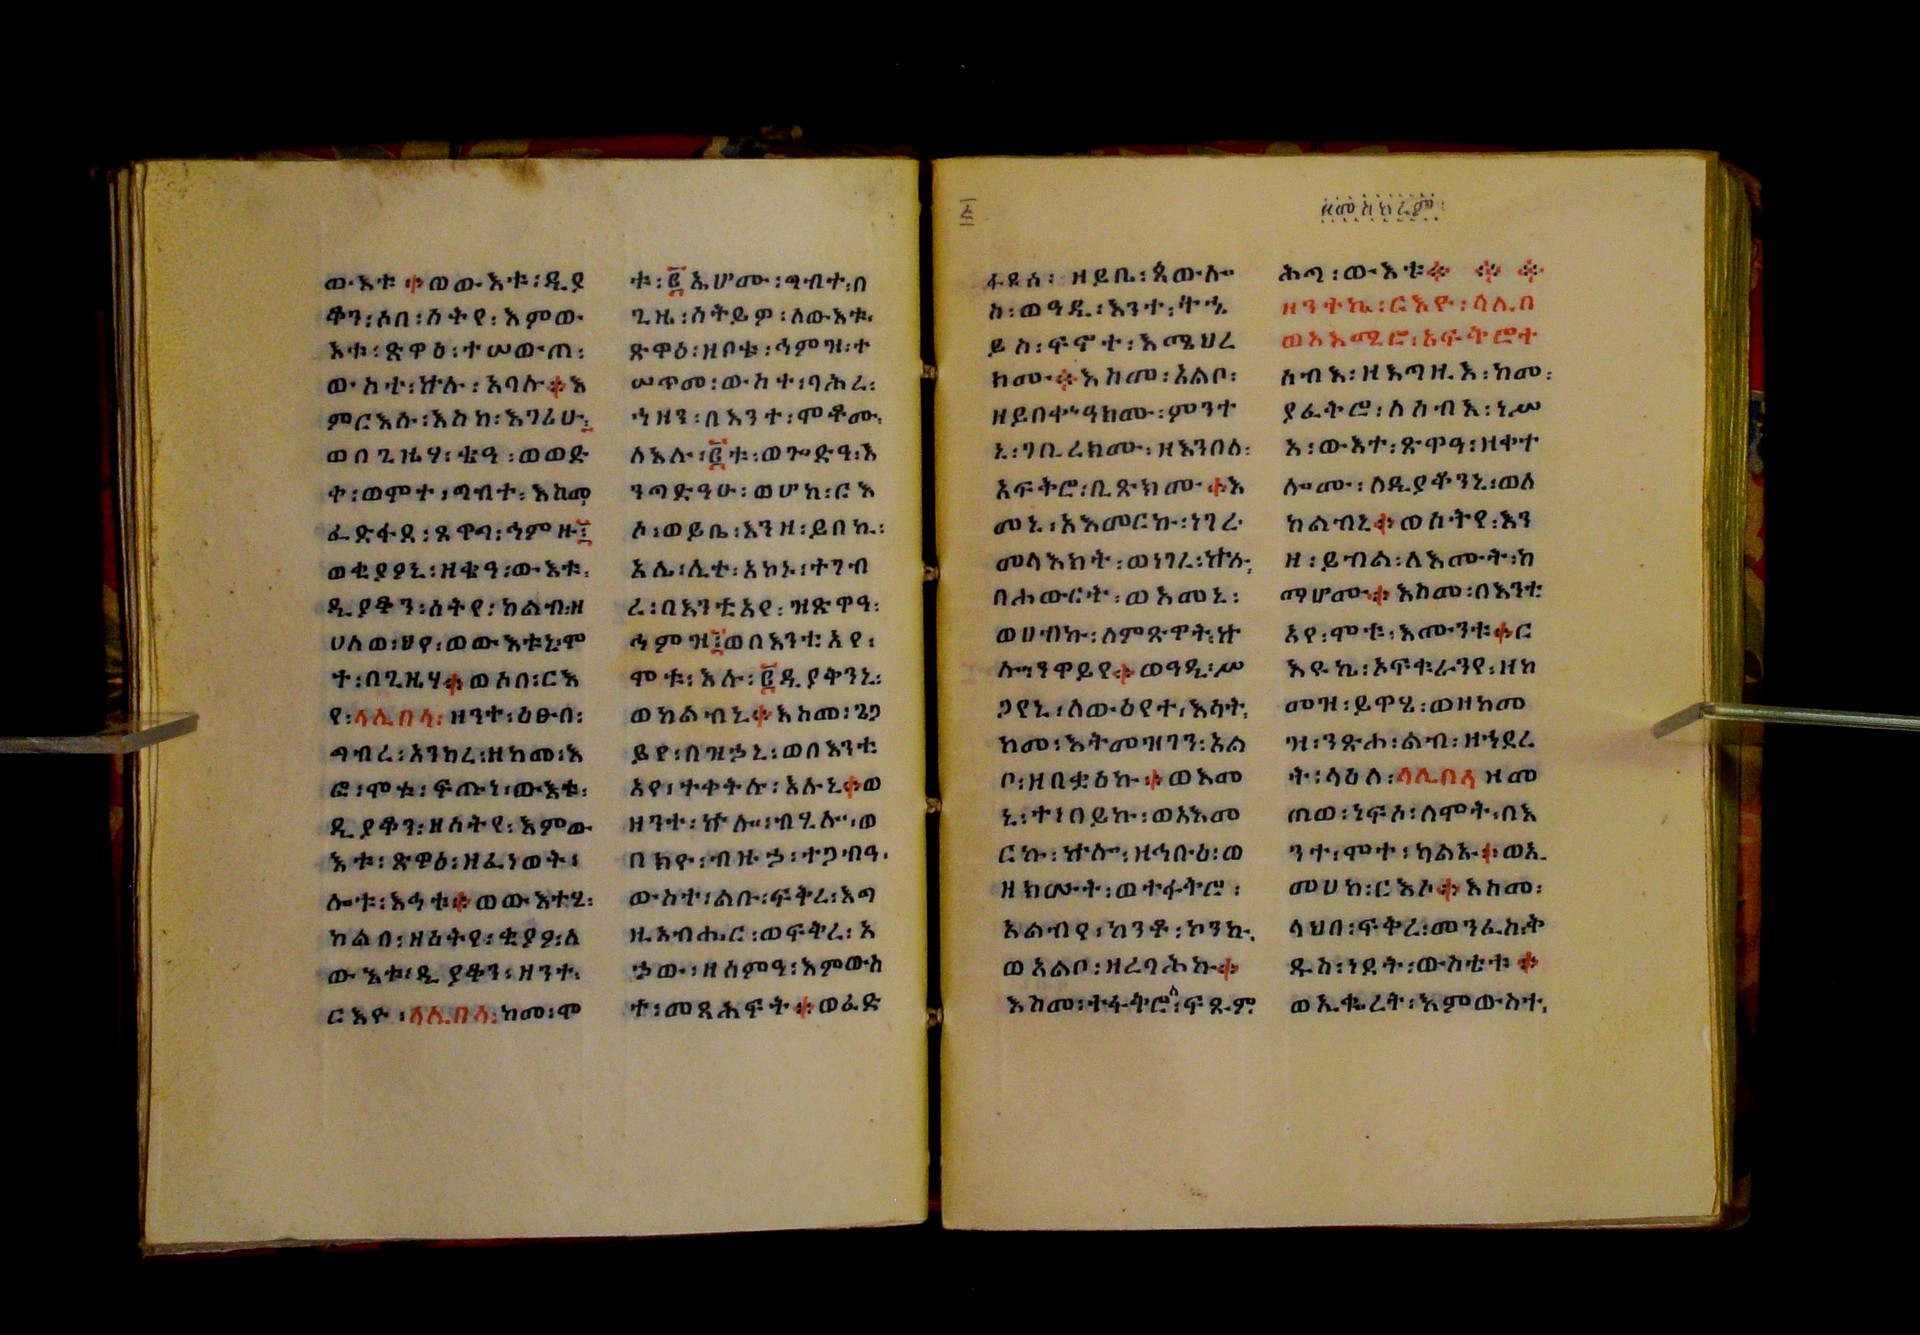 ውእቱ ። ወውእቱ ፡ ዲያ
ቆን ፡ ሶበ ፡ ሰትየ ፡ እምው
እቱ ፡ ጽዋዕ ፡ ተሠውጠ ፡
ውስተ ፡ ኵሉ ፡ አባሉ ። እ
ምርእሱ ፡ እስከ ፡ እገሪሁ ፡
ወበጊዜሃ ፡ ቄዓ ፡ ወወድ
ቀ ፡ ወሞተ ፡ ግብተ ፡ እስመ
ፈድፋደ ፡ ጸዋግ ፡ ኅምዙ ፡
ወቂያዖኒ ፡ ዘቄዓ ፡ ውእቱ ፡
ዲያቆን ፡ ሰትየ ፡ ከልብ ፡ ዘ
ሀለወ ፡ ህየ ፡ ወውእቱኒ ፡ ሞ
ተ ፡ በጊዜሃ ። ወሶበ ፡ ርእ
የ ፡ ላሊበላ ፡ ዘንተ ፡ ዕፁበ ፡
ግብረ ፡ አንከረ ፡ ዘከመ ፡ እ
ፎ ፡ ሞቱ ፡ ፍጡነ ፡ ውእቱ ፡
ዲያቆን ፡ ዘሰትየ ፡ እምው
እቱ ፡ ጽዋዕ ፡ ዘፈነወት ፡
ሎቱ ፡ እኅቱ ። ወውእተሂ ፡
ከልበ ፡ ዘሰትየ ፡ ቂያዖ ፡ ለ
ውእቱ ፡ ዲያቆን ፡ ዘንተ ፡
ርእዮ ፡ ላሊበላ ፡ ከመ ፡ ሞ
ቱ ፡ ፪ ኤሆሙ ፡ ግብተ ፡ በ
ጊዜ ፡ ሰትይዎ ፡ ለውእቱ ፡
ጽዋዕ ፡ ዘቦቱ ፡ ኅምዝ ፡ ተ
ሠጥመ ፡ ውስተ ፡ ባሕረ ፡
ኀዘን ፡ በእንተ ፡ ሞቶሙ ፡
ለእሉ ፡ ፪ቱ ፡ ወጐድዓ ፡ እ
ንግድዓሁ ፡ ወሆከ ፡ ርእ
ሶ ፡ ወይቤ ፡ እንዘ ፡ ይበኪ ፡
አሌ ፡ ሊተ ፡ አኮኑ ፡ ተገብ
ረ ፡ በእንቲአየ ፡ ዝጽዋዓ ፡
ኅምዝ ፡ ወበእንቲአየ ፡
ሞቱ ፡ እሉ ፡ ፪ ዲያቅንኒ ፡
ወከልብኒ ። እስመ ፡ ጌጋ
ይየ ፡ በዝኃኒ ፡ ወበእንቲ
አየ ፡ ተቀትሉ ፡ እሉኒ ። ወ
ዘንተ ፡ ኵሎ ፡ ብሂሎ ፡ ወ
በክዮ ፡ ብዙኃ ፡ ተጋብዓ ፡
ውስተ ፡ ልቡ ፡ ፍቅረ ፡ እግ
ዚአብሔር ፡ ወፍቅረ ፡ እ
ኃው ፡ ዘሰምዓ ፡ እምውስ
ተ ፡ መጽሐፍት ። ወፈድ
ዘመስከረም
ፋደሰ ፡ ዘይቤ ፡ ጳውሎ
ስ ፡ ወዓዲ ፡ እንተ ፡ ትሄ
ይስ ፡ ፍኖተ ፡ እሜህረ
ክሙ ። እስመ ፡ አልቦ ፡
ዘይበቍዓክሙ ፡ ምንተ
ኒ ፡ ገቢረክሙ ፡ ዘእንበለ ፡
አፍቅሮ ፡ ቢጽክሙ ። እ
መኒ ፡ አእመርኩ ፡ ነገረ
መላእክት ፡ ወነገረ ፡ ኵሉ ፡
በሐውርት ፡ ወእመኒ ፡
ወሀብኩ ፡ ለምጽዋት ፡ ኵ
ሎ ፡ ንዋይየ ። ወዓዲ ፡ ሥ
ጋየኒ ፡ ለውዕየተ ፡ እሳት ፡
ከመ ፡ እትመዝገን ፡ አል
ቦ ፡ ዘበቋዕኩ ። ወእመ
ኒ ፡ ተነበይኩ ፡ ወአእመ
ርኩ ፡ ኵሎ ፡ ዘኅቡዕ ፡ ወ
ዘክሡት ፡ ወተፋቅሮ ፡
አልብየ ፡ ከንቶ ፡ ኮንኩ ፡
ወአልቦ ፡ ዘረባሕኩ ።
እስመ ፡ ተፋቅሮ ፡ ፍጹም
ሕግ ፡ ውእቱ ። ። ።
ዘንተኬ ፡ ርእዮ ፡ ላሊበ
ወአእሚሮ ፡ አፍቅሮተ
ሰብእ ፡ ዘእግዚእ ፡ ከመ ፡
ያፈቅሮ ፡ ለሰብእ ፡ ነሥ
አ ፡ ውእተ ፡ ጽዋዓ ፡ ዘቀተ
ሎሙ ፡ ለዲያቆንኒ ፡ ወለ
ከልብኒ ። ወሰትየ ፡ እን
ዘ ፡ ይብል ፡ ለእሙት ፡ ከ
ማሆሙ ። እስመ ፡ በእንቲ
አየ ፡ ሞቱ ፡ እሙንቱ ። ር
እዩኬ ፡ ኦፍቁራንየ ፡ ዘከ
መዝ ፡ ይዋሄ ፡ ወዘከመ
ዝ ፡ ንጽሐ ፡ ልብ ፡ ዘኀደረ
ት ፡ ላዕለ ፡ ላሊበላ ዘመ
ጠወ ፡ ነፍሶ ፡ ለሞት ፡ በእ
ንተ ፡ ሞተ ፡ ካልኡ ። ወአ
መሀከ ፡ ርእሶ ። እስመ ፡
ላህበ ፡ ፍቅረ ፡ መንፈስ ፡ ቅ
ዱስ ፡ ነደት ፡ ውስቴቱ ።
ወኢቈረት ፡ እምውስተ ፡